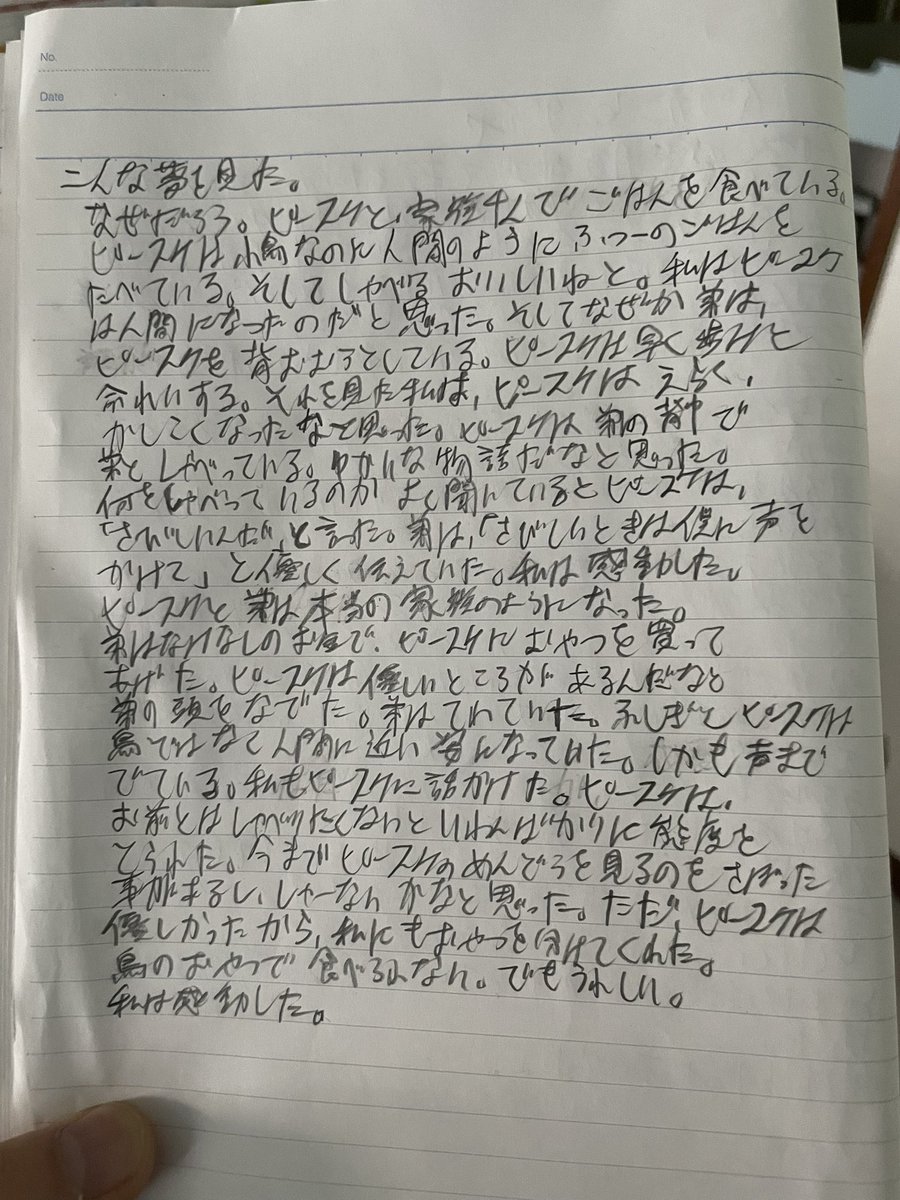 No.
Date
こんな夢を見た。
なぜだろう。ピースケと、家族4人でごはんを食べている。
ピースケは小鳥なのに人間のようにふつーのごはんを
たべている。そしてしゃべる おいしいねと。私はピースケ
は人間になったのだと思った。そしてなぜか弟は、
ピースケを背むおうとしている。ピースケは早く歩けと
命れいする。それを見た私は、ピースケはえらく、
かしこくなったなと思った。ピースケは弟の背中で
弟としゃべっている。ゆかいな物語だなと思った。
何をしゃべっているのかよく聞いているとピースケは、
「さびしいんだ」と言った。弟は、「さびしいときは僕に声を
かけて」と優しく伝えていた。私は感動した。
ピースケと弟は本当の家族のようになった。
弟はなけなしのお金で、ピースケにおやつを買って
あげた。ピースケは優しいところがあるんだなと
弟の頭をなでた。弟はてれていた。ふしぎとピースケは
鳥ではなく人間に近い姿になっていた。しかも声まで
でている。私もピースケに話かけた。ピースケは、
お前とはしゃべりたくないといわんばかりに態度を
とられた。今までピースケのめんどうを見るのをさぼった
事があるし、しゃーないかなと思った。ただ、ピースケは
優しかったから、私にもおやつを分けてくれた。
鳥のおやつで食べれない。でもうれしい。
私は感動した。